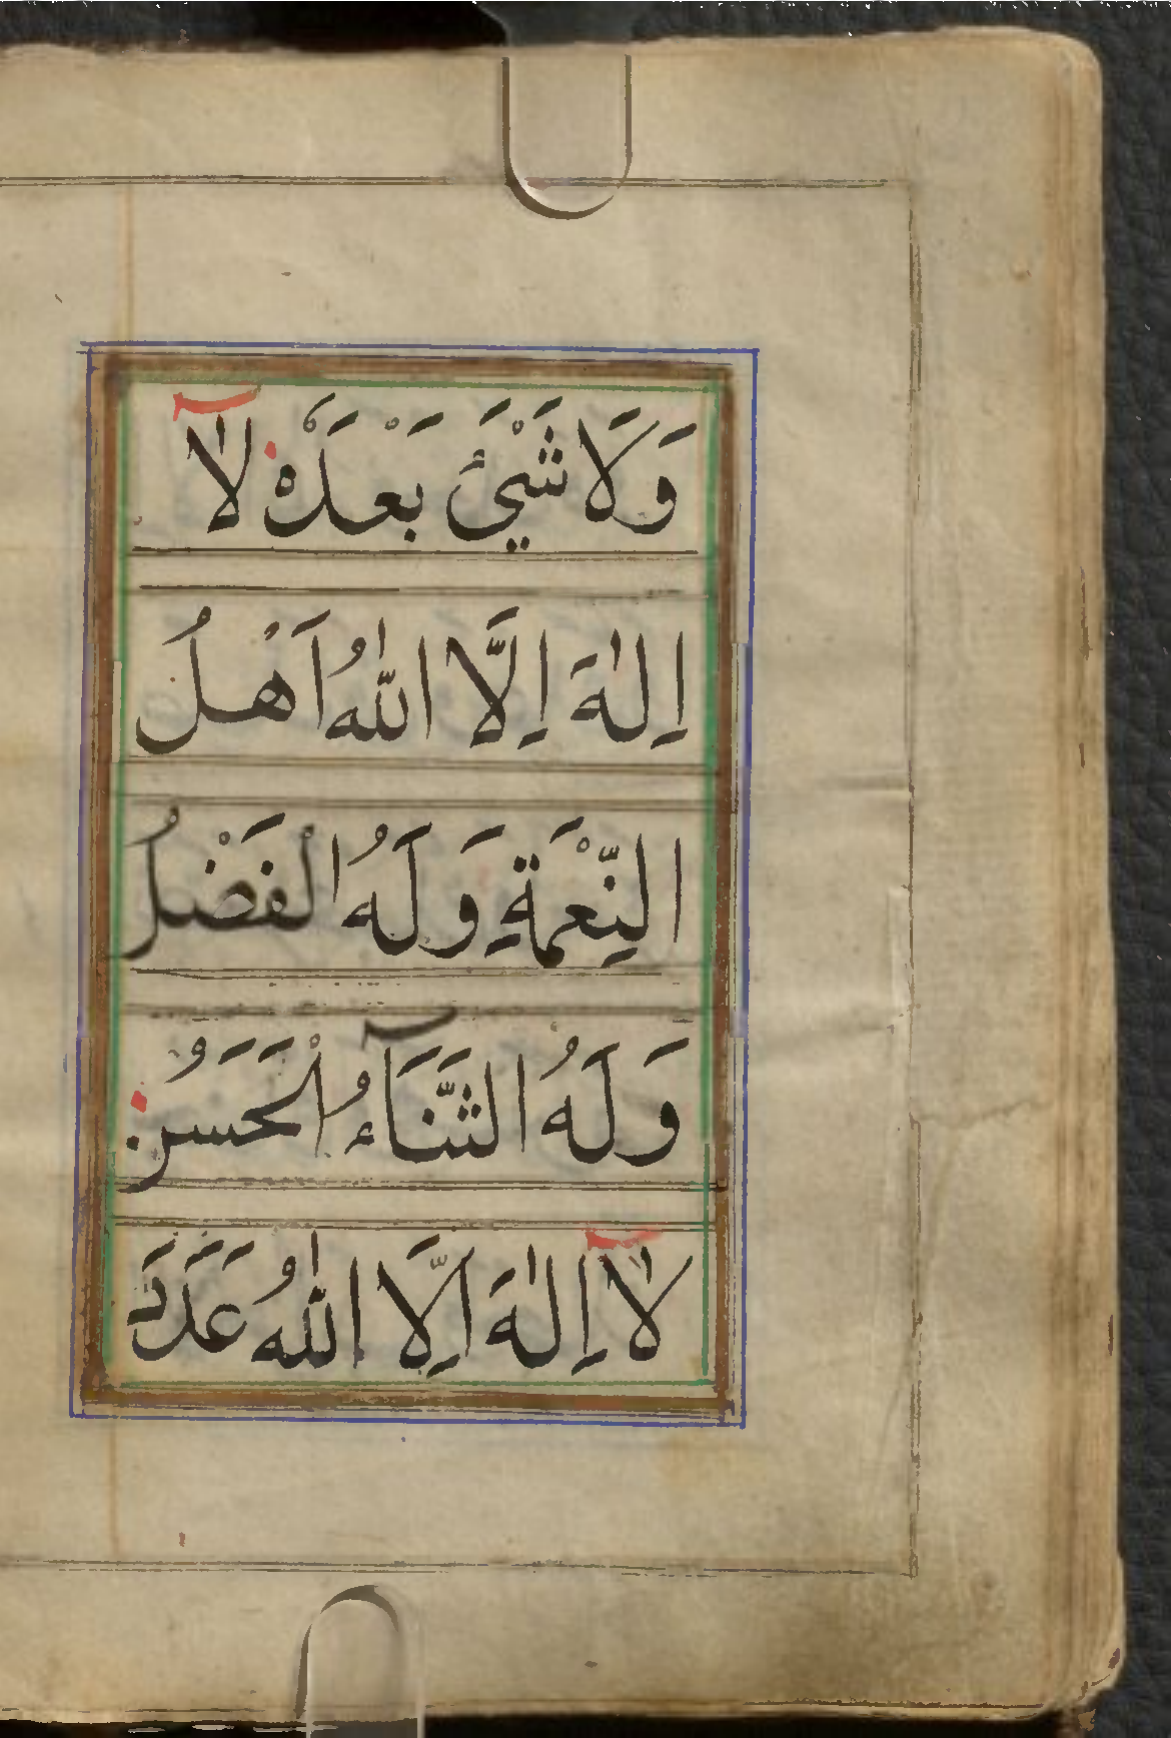 وَلَا شَيْئَ بَعْدَهْ لَا
اِلٰهَ اِلَّا اللّٰهُ اَهْلُ
النِّعْمَةِ وَلَهُ الْفَضْلُ
وَلَهُ الثَّنَآءُ الْحَسَنُ
لَا اِلٰهَ اِلَّا اللّٰهُ عَدَدَ